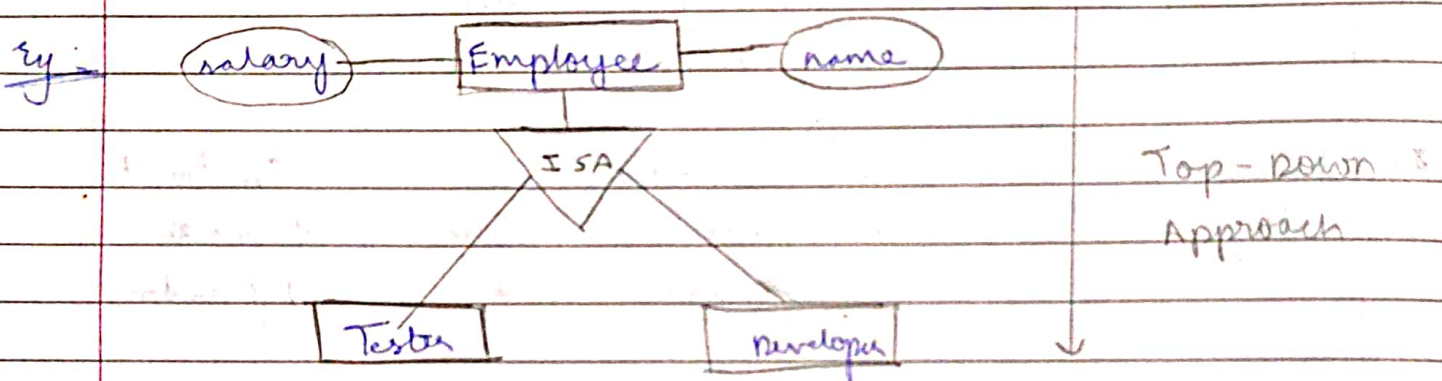 Eg -
salary Employee name
ISA
Top-Down
Approach
Tester Developer